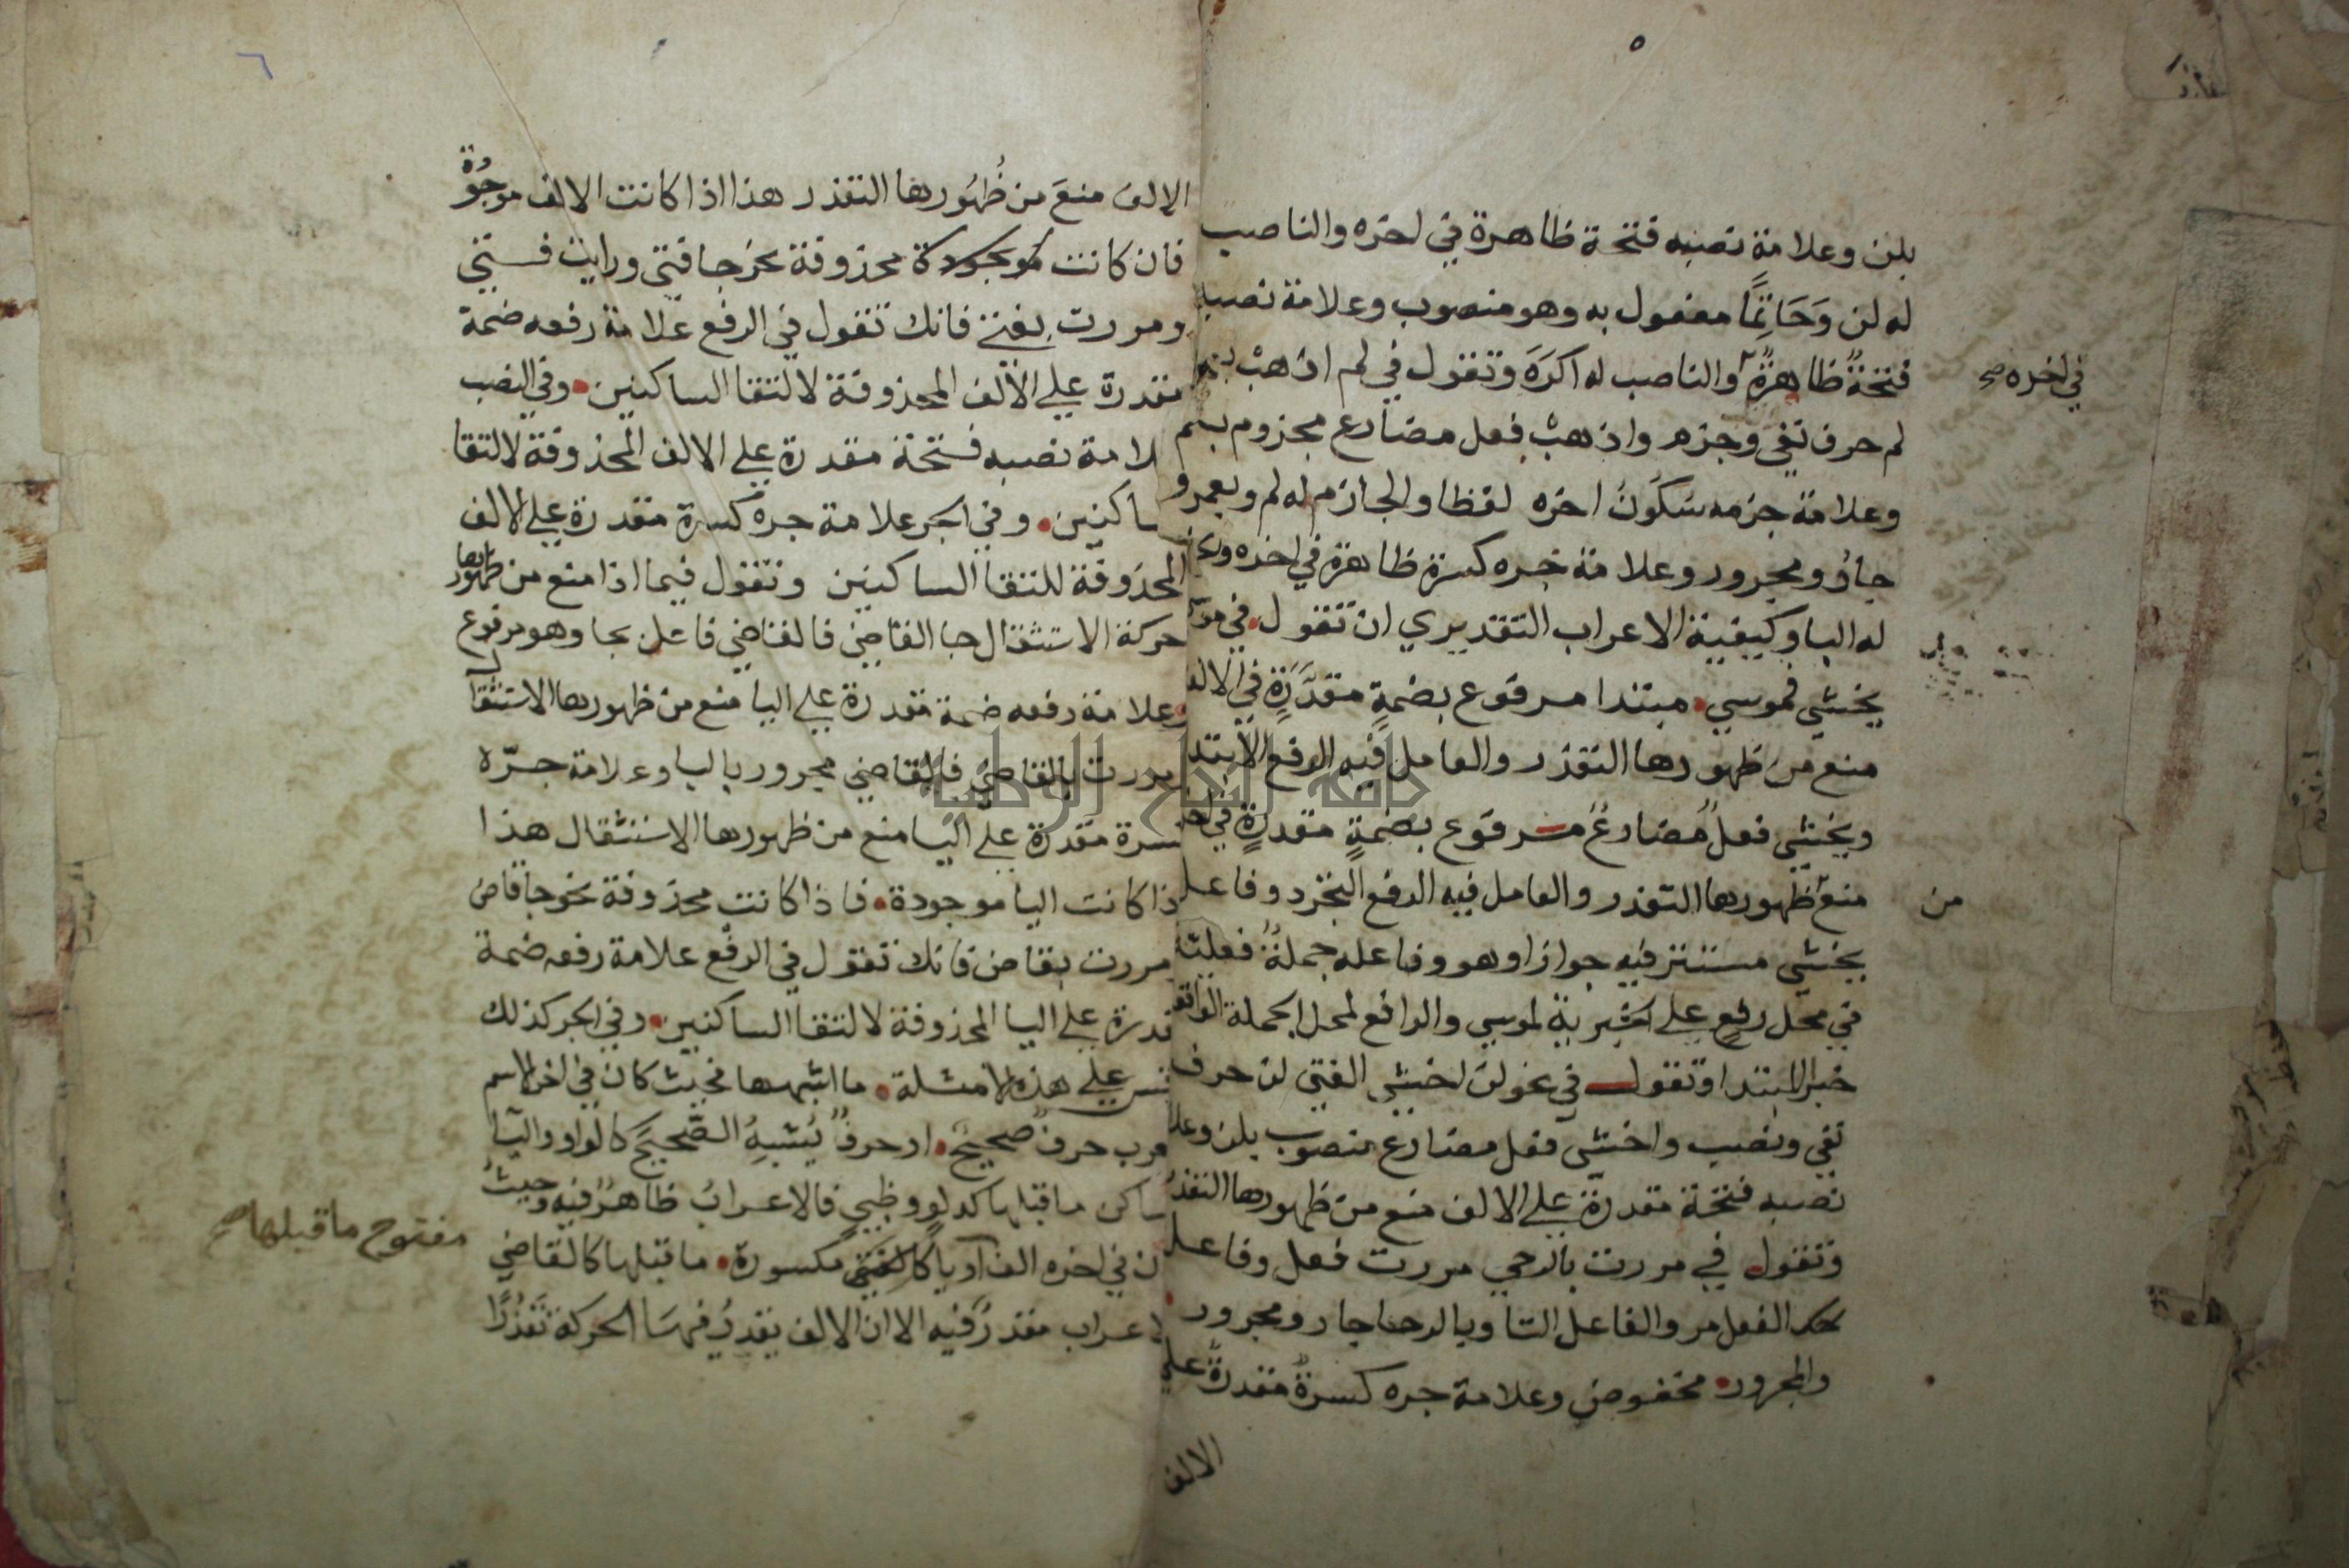 ٥
بلن وعلامة نصبه فتحة ظاهرة في اخره والناصب
له لن وَحَاتِمًا مفعول به وهو منصوب وعلامة نصبه
فتحةٌ ظاهرةٌ والناصب له اكرَهَ وتقول في لم اذهبْ
في اخره صح
لم حرف نفي وجزم واذهبْ فعل مضارع مجزوم بلم
وعلامة جزمه سكونُ اخره لفظا والجازم له لم وبعمرو
جارٌ ومجرور وعلامة جره كسرة ظاهرة في اخره
له البا وكيفية الاعراب التقديري ان تقول في
يخشي فموسي مبتدا مرفوع بضمةٍ مقدَّرَةٍ في الالف
منع من ظهورها التعذر والعامل فيه الرفع الابتدا
ويخشي فعلٌ مُضارعٌ مرفوع بضمةٍ مقدرةٍ في
منع ظهورها التعذر والعامل فيه الرفع التجرد وفاعل
من
يخشي مستتر فيه جوازا وهو وفاعله جملةٌ فعلية
في محل رفعٍ علي الخبرية لموسي والرافع لمحل الجملة الواقعة
خبرا المبتدا وتقول في نحو لن اخشي الفتي لن حرف
نفي ونصب واخشي فعل مضارع منصوب بلن وعلا
نصبه فتحة مقدرة علي الالف منع من ظهورها التعذر
وتقول في مررت بالرحي مررت فعل وفاعل
الفعل مر والفاعل التا وبالرحا جار ومجرور
والمجرور مخفوض وعلامة جره كسرةٌ مقدرةٌ علي
الالف
٦
الالف منعَ من ظُهُورها التعذر هذا اذا كانت الالف موجُوة
فان كانت موجودة محذوفة نحو جا فتي ورايت فتي
ومررت بفتي فانك تقول في الرفع علامة رفعه ضمة
مقدرة علي الالف المحذوفة لالتقا الساكنين وفي النصب
لامة نصبه فتحة مقدرة علي الالف المحذوفة لالتقا
ساكنين وفي الجر علامة جره كسرة مقدرة علي الالف
المحذوفة للتقا الساكنين وتقول فيما اذا منع من ظهورها
حركة الاستثقال جا القاضي فالقاضي فاعل بجا وهو مرفوع
وعلامة رفعه ضمة مقدرة علي اليا منع من ظهورها الاستثقال
مررت بالقاضي فالقاضي مجرور بالبا وعلامة جرّه
كسرة مقدرة علي اليا منع من ظهورها الاستثقال هذا
ذا كانت اليا موجودة فاذا كانت محذوفة نحو جا قاض
مررت بقاض فانك تقول في الرفع علامة رفعه ضمة
قدرة علي اليا المحذوفة لالتقا الساكنين وفي الجر كذلك
علي هذه الامثلة ما اشبهها فحيث كان في اخر الاسم
عرب حرفٌ صحيحٌ او حرفٌ يُشبِهُ الصَّحيحَ كالواو واليا
ساكن ما قبلها كدلوٍ وظبيٍ فالاعرابُ ظاهرٌ فيه وحيثُ
ن في اخره الف او يا كالفتي مكسورة ما قبلها كالقاضي
مفتوح ما قبلها صح
لاعراب مقدرٌ فيه الا ان الالف يقدرُ فيها الحركة تَعَذُّرًا
جامعة النجاح الوطنية